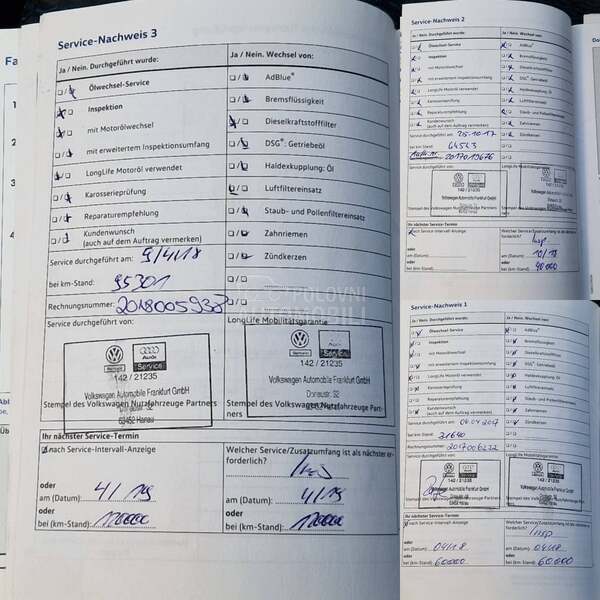 Service-Nachweis 3
Ja / Nein. Durchgeführt wurde:
Ölwechsel-Service
Inspektion
mit Motorölwechsel
mit erweitertem Inspektionsumfang
LongLife Motoröl verwendet
Karosserieprüfung
Reparaturempfehlung
Kundenwunsch
(auch auf dem Auftrag vermerken)
Service durchgeführt am: 9/4/18
bei km-Stand: 95301
Rechnungsnummer: 2018005938
Service durchgeführt von:
Ja / Nein. Wechsel von:
AdBlue®
Bremsflüssigkeit
Dieselkraftstofffilter
DSG®: Getriebeöl
Haldexkupplung: Öl
Luftfiltereinsatz
Staub- und Pollenfiltereinsatz
Zahnriemen
Zündkerzen
LongLife Mobilitätsgarantie
POLOVNI
AUTOMOBILI
Audi
Service
142 / 21235
Volkswagen Automobile Frankfurt GmbH
Donaustr. 32
63452 Hanau
Audi
Service
142 / 21235
Volkswagen Automobile Frankfurt GmbH
Donaustr. 32
Stempel des Volkswagen Nutzfahrzeuge Partners
Ihr nächster Service-Termin
nach Service-Intervall-Anzeige
oder
am (Datum): 4/19
oder
bei (km-Stand): 120000
Welcher Service/Zusatzumfang ist als nächster erforderlich?
Insp
oder
am (Datum): 4/19
oder
bei (km-Stand): 120000
Service-Nachweis 2
Ja / Nein. Durchgeführt wurde:
Ölwechsel-Service
Inspektion
mit Motorölwechsel
mit erweitertem Inspektionsumfang
LongLife Motoröl verwendet
Karosserieprüfung
Reparaturempfehlung
Kundenwunsch
(auch auf dem Auftrag vermerken)
Service durchgeführt am: 25.10.17
bei km-Stand: 64563
2017019676
Ja / Nein. Wechsel von:
AdBlue®
Bremsflüssigkeit
Dieselkraftstofffilter
DSG®: Getriebeöl
Haldexkupplung: Öl
Luftfiltereinsatz
Staub- und Pollenfiltereinsatz
Zahnriemen
Zündkerzen
142 / 21235
Volkswagen Automobile Frankfurt GmbH
Stempel des Volkswagen Nutzfahrzeuge Partners
Ihr nächster Service-Termin
nach Service-Intervall-Anzeige
oder
Insp
10/18
90000
Service-Nachweis 1
Ja / Nein. Durchgeführt wurde:
Ölwechsel-Service
Inspektion
mit Motorölwechsel
mit erweitertem Inspektionsumfang
LongLife Motoröl verwendet
Karosserieprüfung
Reparaturempfehlung
Kundenwunsch
(auch auf dem Auftrag vermerken)
Service durchgeführt am: 04.04.2017
bei km-Stand: 31640
Rechnungsnummer: 2017006222
Ja / Nein. Wechsel von:
AdBlue®
Bremsflüssigkeit
Dieselkraftstofffilter
DSG®: Getriebeöl
Haldexkupplung: Öl
Luftfiltereinsatz
Staub- und Pollenfiltereinsatz
Zahnriemen
Zündkerzen
142 / 21235
Ihr nächster Service-Termin
nach Service-Intervall-Anzeige
oder
am (Datum): 04/18
oder
bei (km-Stand): 60.000
Insp
oder
am (Datum): 04/18
oder
bei (km-Stand): 60.000